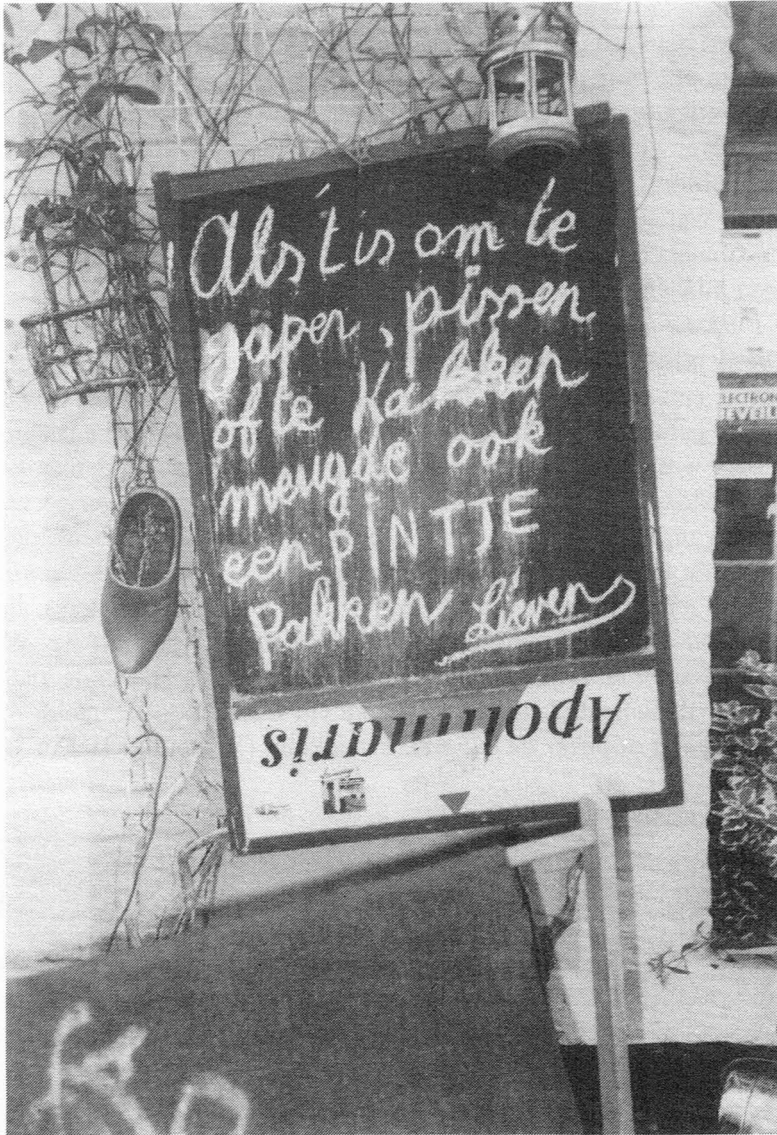 Als 't is om te
gapen, pissen
of te kakken
meugde ook
een PINTJE
Pakken Lieven
Apollinaris
ELECTRON
REVEIL